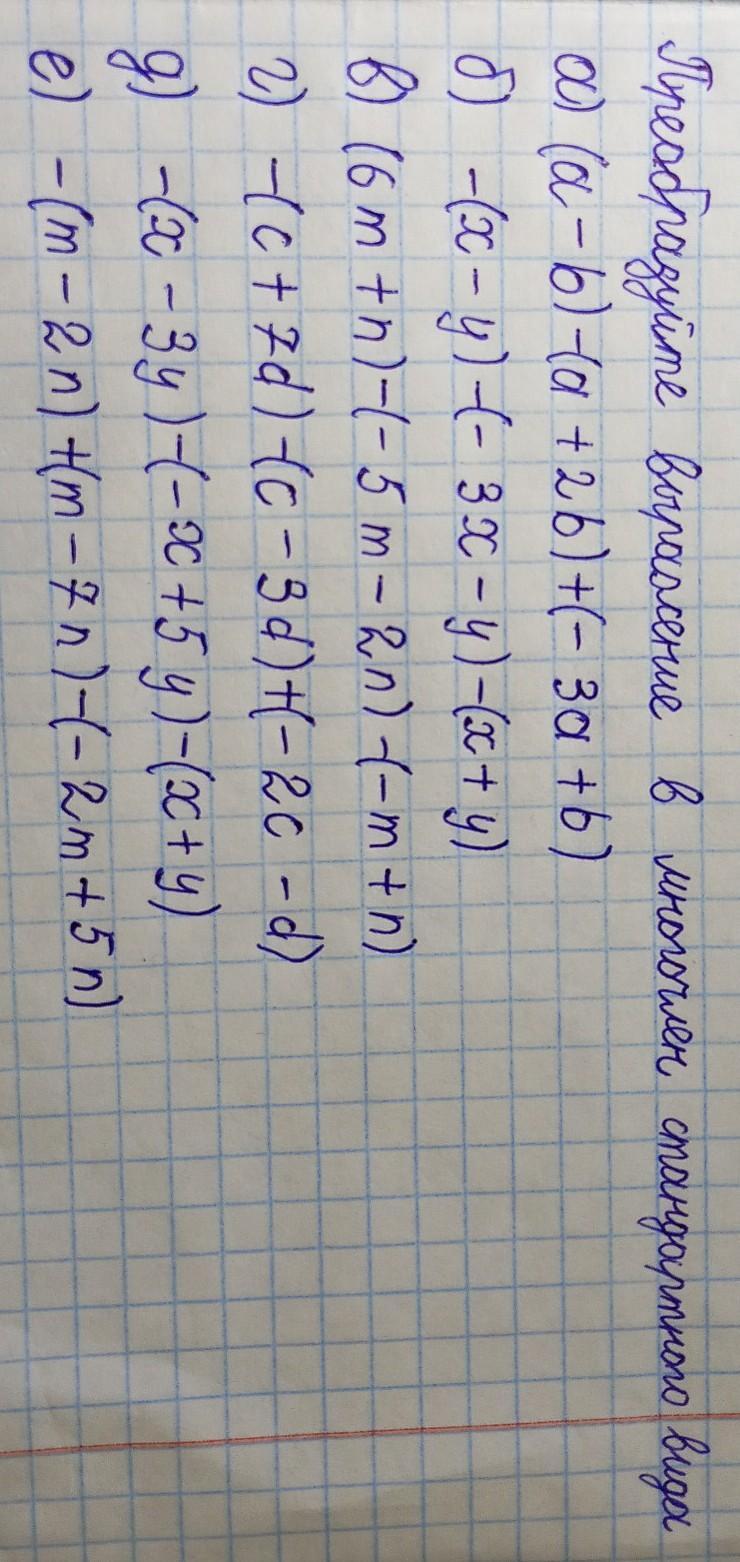 Преобразуйте выражение в многочлен стандартного вида
а) (a - b) - (a + 2b) + (- 3a + b)
б) -(x - y) - (- 3x - y) - (x + y)
в) (6m + n) - (- 5m - 2n) - (- m + n)
г) -(c + 7d) - (c - 3d) + (- 2c - d)
д) -(x - 3y) - (- x + 5y) - (x + y)
е) -(m - 2n) + (m - 7n) - (- 2m + 5n)